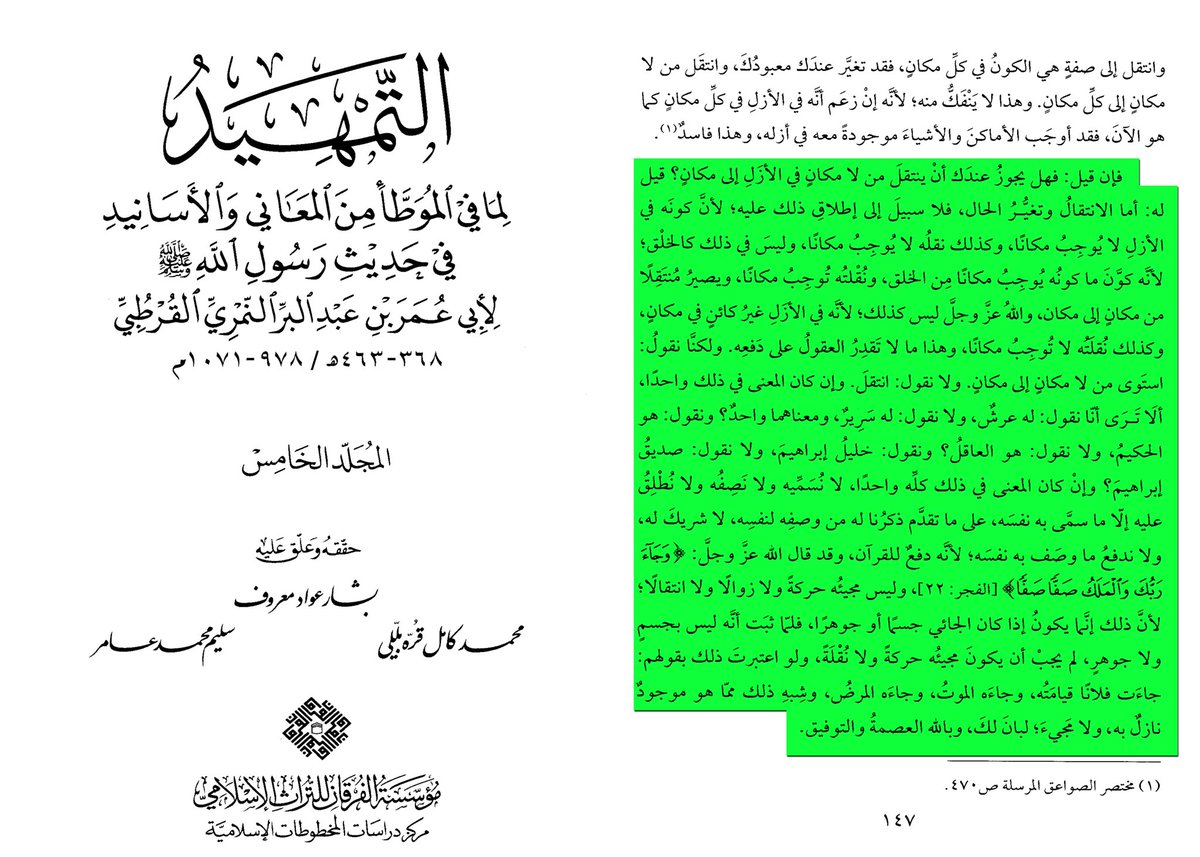 التمهيد
لما في الموطأ من المعاني والأسانيد
في حديث رسول الله ﷺ
لأبي عمر بن عبد البر النمري القرطبي
٣٦٨-٤٦٣هـ / ٩٧٨-١٠٧١م
المجلد الخامس
حققه وعلق عليه
بشار عواد معروف
محمد كامل قره بللي
سليم محمد عامر
مؤسسة الفرقان للتراث الإسلامي
مركز دراسات المخطوطات الإسلامية
وانتقل إلى صفةٍ هي الكونُ في كلِّ مكانٍ، فقد تغيَّر عندَك معبودُكَ، وانتقَل من لا
مكانٍ إلى كلِّ مكانٍ. وهذا لا يَنْفَكُّ منه؛ لأنَّه إنْ زعَم أنَّه في الأزلِ في كلِّ مكانٍ كما
هو الآنَ، فقد أوجَب الأماكنَ والأشياءَ موجودةً معه في أزله، وهذا فاسدٌ(١).
فإن قيل: فهل يجوزُ عندَك أنْ ينتقلَ من لا مكانٍ في الأزَلِ إلى مكانٍ؟ قيل
له: أما الانتقالُ وتغيُّرُ الحال، فلا سبيلَ إلى إطلاقِ ذلك عليه؛ لأنَّ كونَه في
الأزلِ لا يُوجِبُ مكانًا، وكذلك نقلُه لا يُوجِبُ مكانًا، وليسَ في ذلك كالخلْق؛
لأنَّه كوَّنَ ما كونُه يُوجِبُ مكانًا مِن الخلق، ونُقْلتُه تُوجِبُ مكانًا، ويصيرُ مُنتَقِلًا
من مكانٍ إلى مكان، واللهُ عزَّ وجلَّ ليس كذلك؛ لأنَّه في الأزَلِ غيرُ كائنٍ في مكانٍ،
وكذلك نُقلَتُه لا تُوجِبُ مكانًا، وهذا ما لا تَقدِرُ العقولُ على دَفعِه. ولكنَّا نقولُ:
استَوى من لا مكانٍ إلى مكانٍ. ولا نقول: انتقلَ. وإن كان المعنى في ذلك واحدًا،
ألَا تَرَى أنّا نقول: له عرشٌ، ولا نقول: له سَرِيرٌ، ومعناهما واحدٌ؟ ونقول: هو
الحكيمُ، ولا نقول: هو العاقلُ؟ ونقول: خليلُ إبراهيمَ، ولا نقول: صديقُ
إبراهيمَ؟ وإنْ كان المعنى في ذلك كلِّه واحدًا، لا نُسَمِّيه ولا نَصِفُه ولا نُطْلِقُ
عليه إلّا ما سمَّى به نفسَه، على ما تقدَّم ذكرُنا له من وصفِه لنفسِه، لا شريكَ له،
ولا ندفعُ ما وصَف به نفسَه؛ لأنَّه دفعٌ للقرآن، وقد قال الله عزَّ وجلَّ: ﴿وَجَآءَ
رَبُّكَ وَٱلْمَلَكُ صَفًّا صَفًّا﴾ [الفجر: ٢٢]، وليس مجيئُه حركةً ولا زوالًا ولا انتقالًا؛
لأن ذلك إنَّما يكونُ إذا كان الجائي جسمًا أو جوهرًا، فلمّا ثبَت أنَّه ليس بجسمٍ
ولا جوهرٍ، لم يجبْ أن يكونَ مجيئُه حركةً ولا نُقْلَةً، ولو اعتبرتَ ذلك بقولهم:
جاءَت فلانًا قيامَتُه، وجاءَه الموتُ، وجاءَه المرضُ، وشِبهِ ذلك ممّا هو موجودٌ
نازلٌ به، ولا مَجيءَ؛ لبانَ لكَ، وبالله العصمةُ والتوفيق.
(١) مختصر الصواعق المرسلة ص٤٧٠.
١٤٧